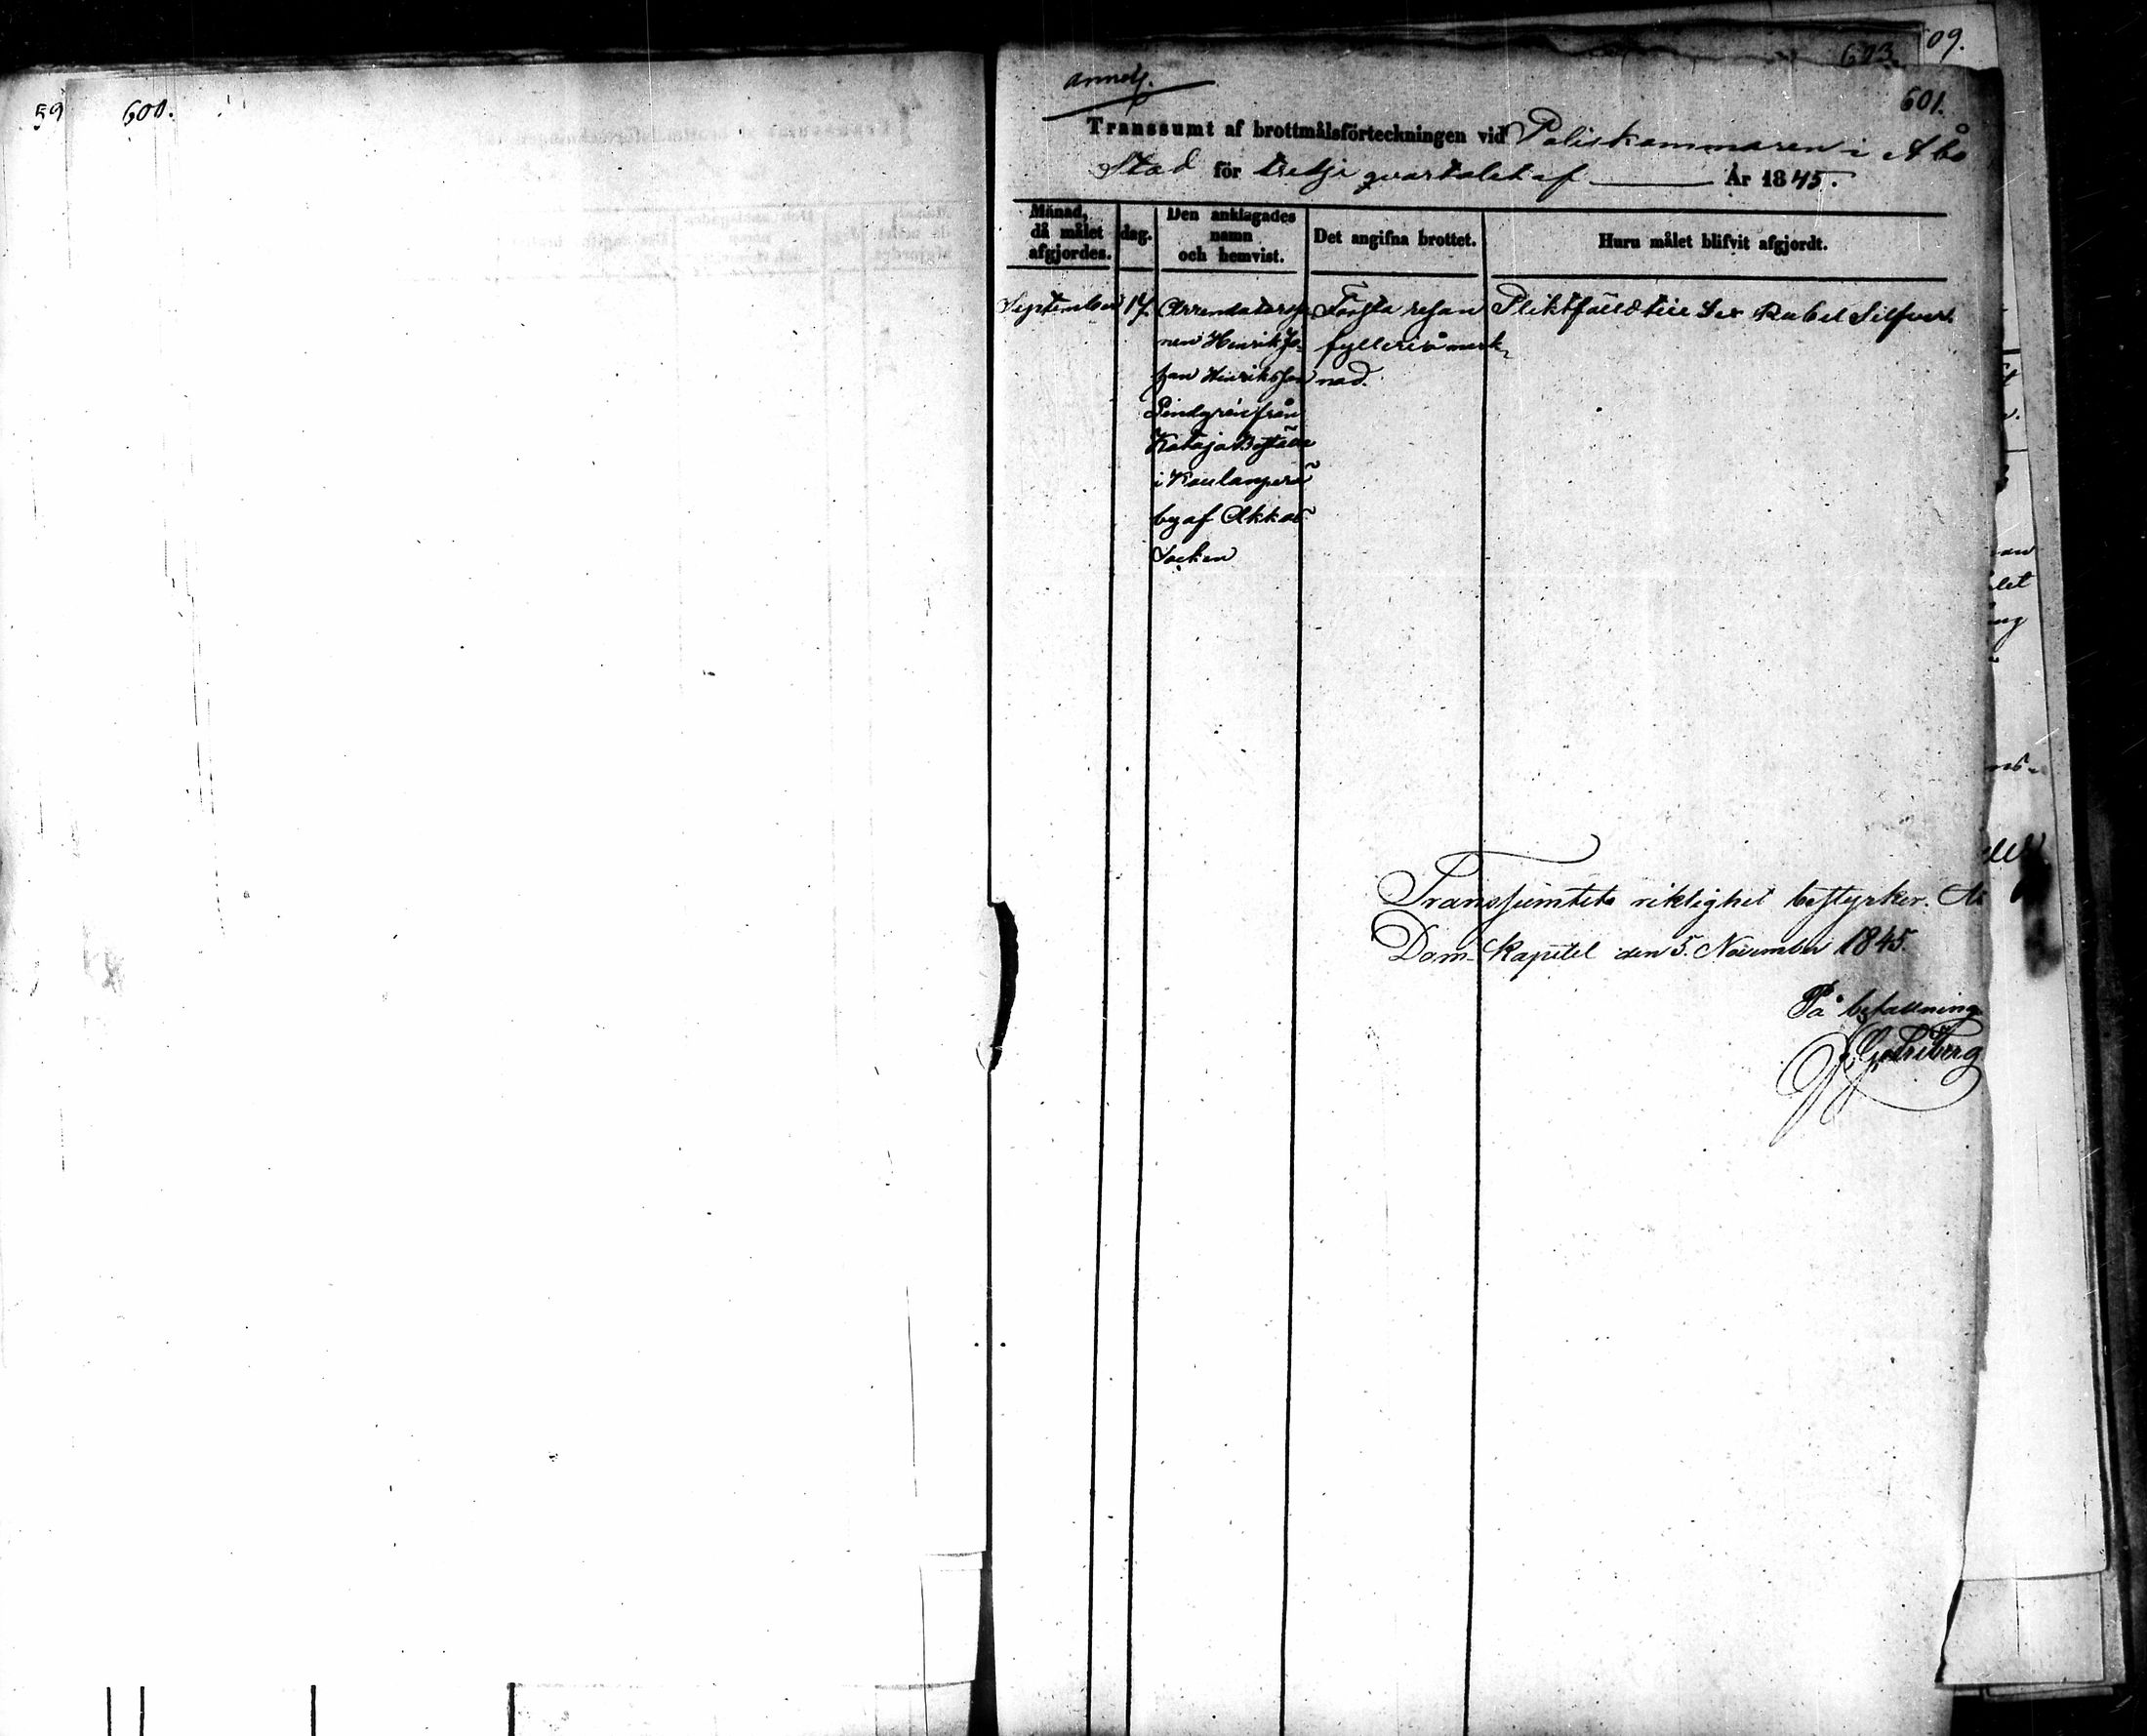 59 600.
603. 09.
601.
annot.
Transsumt af brottmålsförteckningen vid Poliskammaren i Åbo
Stad för tredje qvartalet af ——— År 1845.
Månad, då målet afgjordes.
dag.
Den anklagades namn och hemvist.
Det angifna brottet.
Huru målet blifvit afgjordt.
September 17. Arrendatorsso- Första resan Pliktfälld till Sex Rubel Silfver.
nen Henrik Jo- fylleri å mark-
han Henriksson nad.
Lindgrén från
Kataja Boställe
i Kaulanperä
by af Akkas
Socken
Transsumtets riktighet bestyrker. Åbo
Dom-Kapitel den 5. November 1845.
På befallning